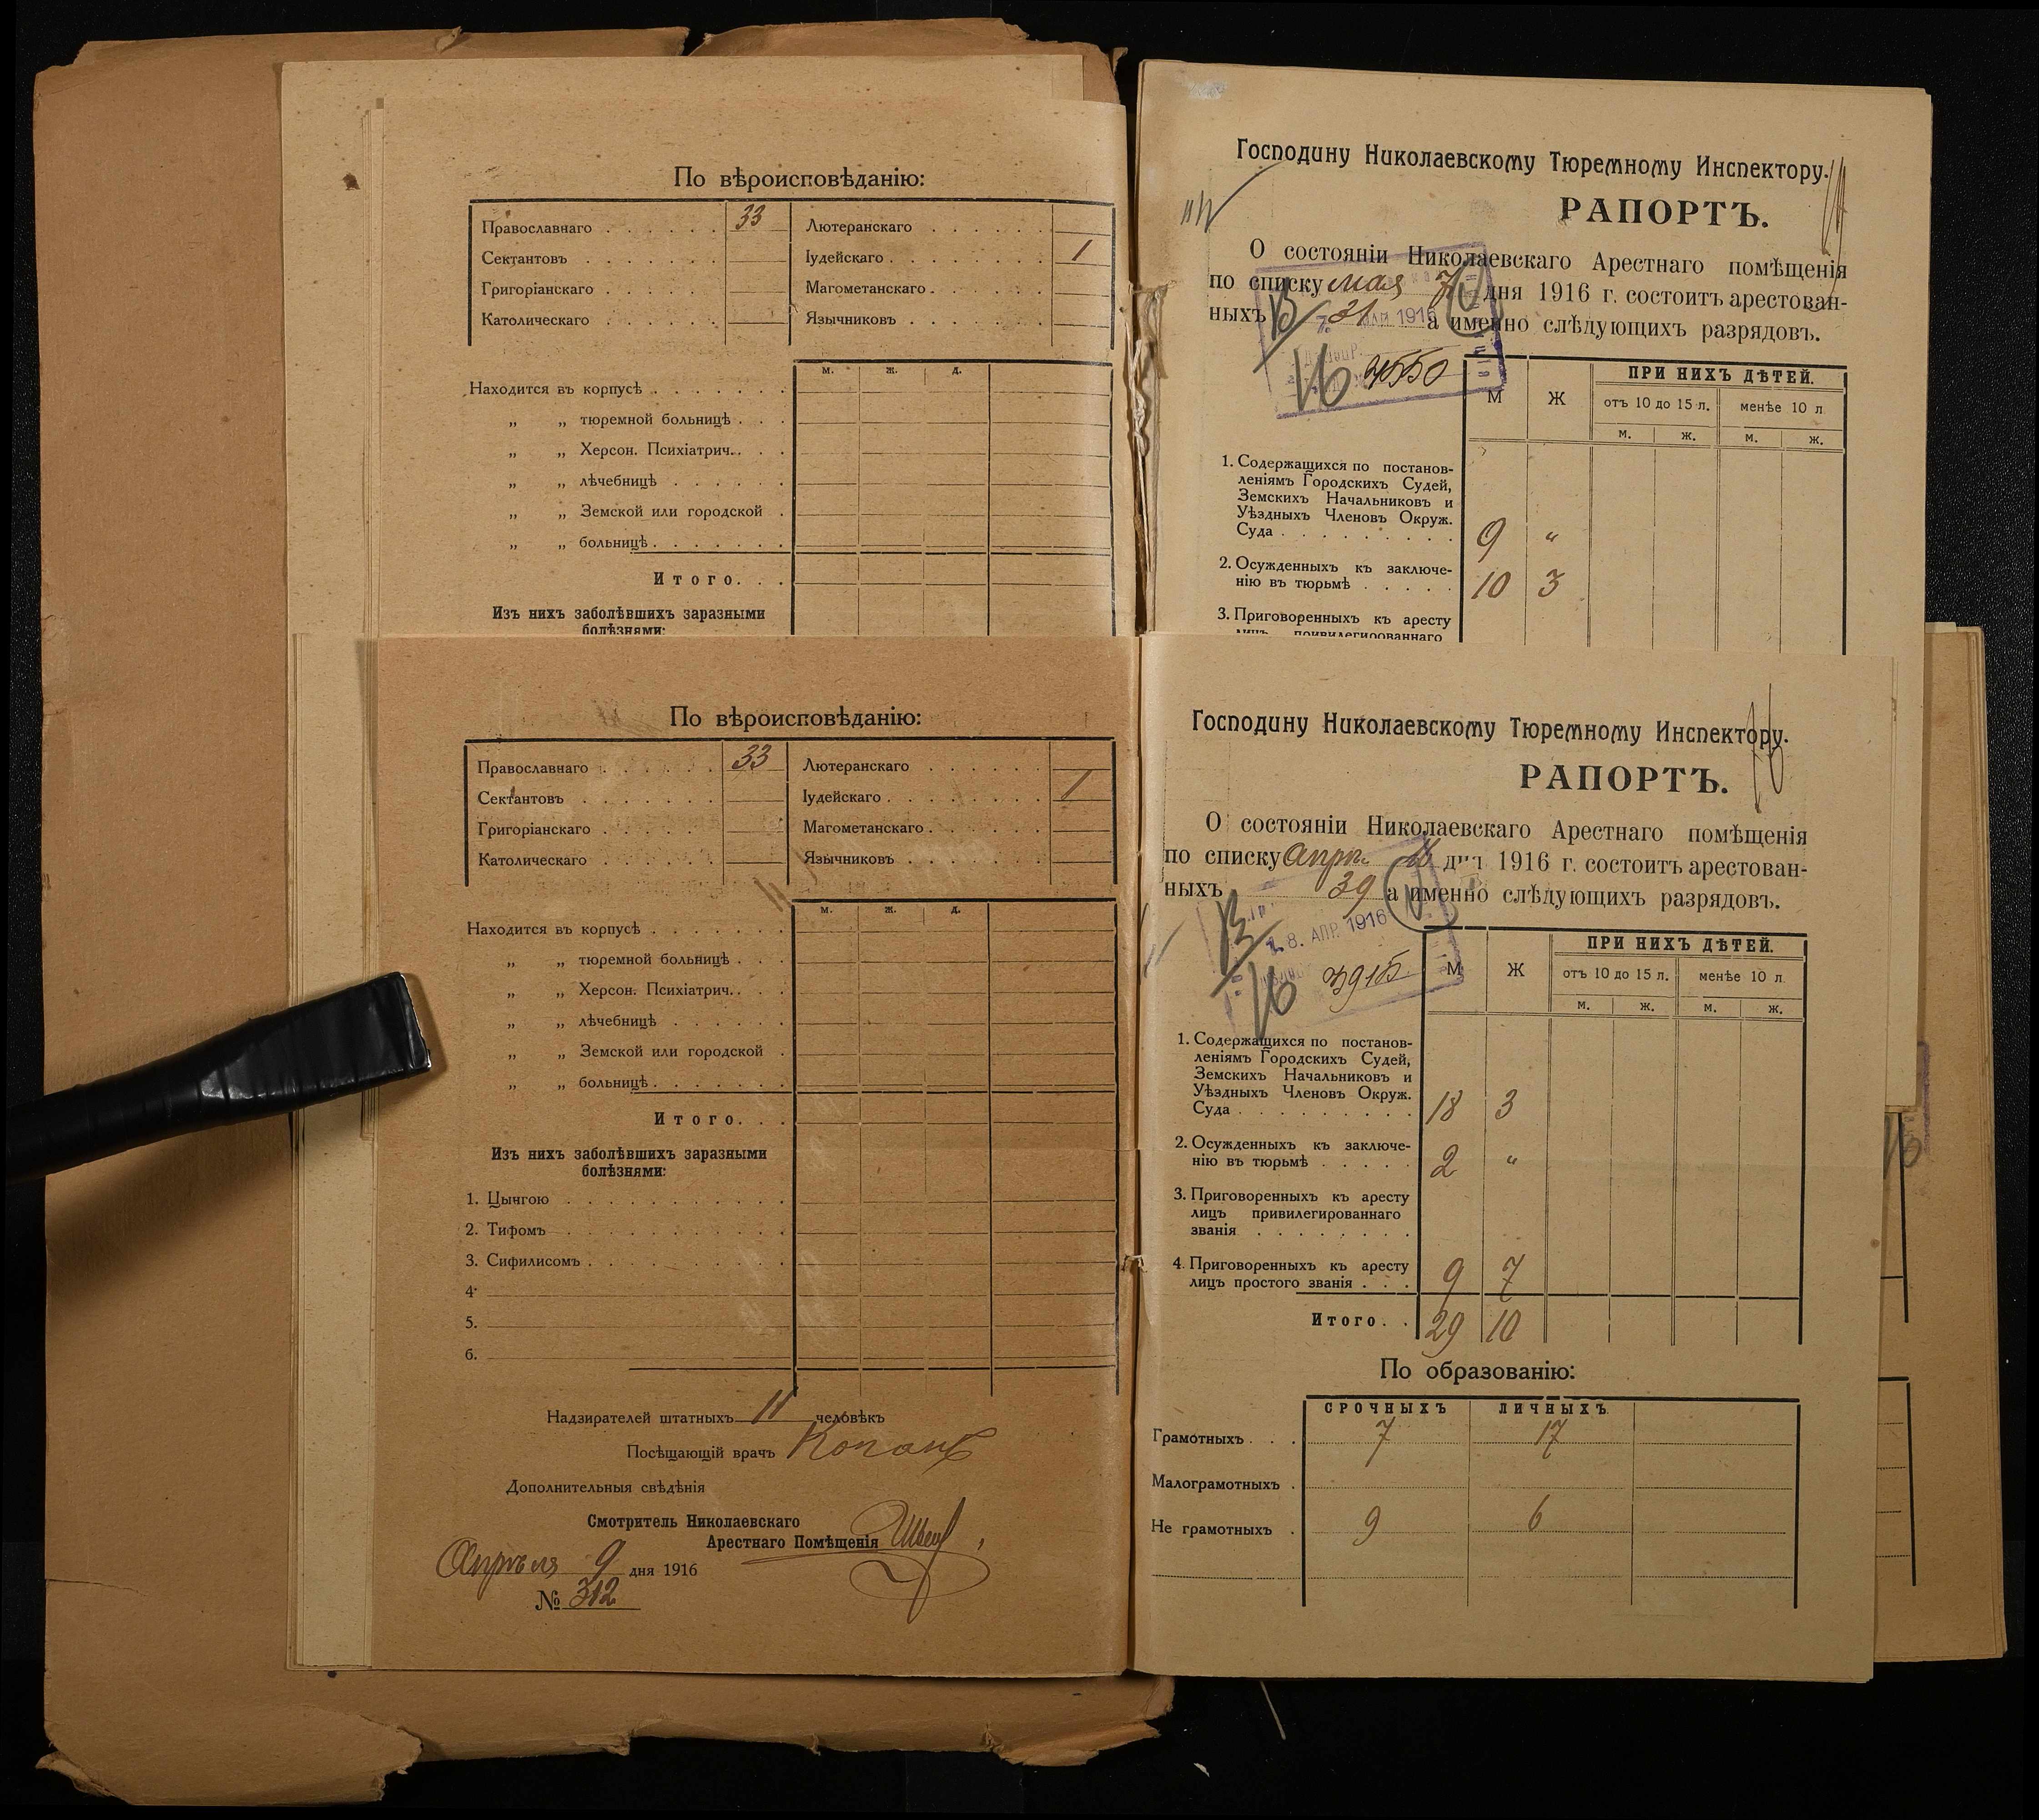 По вѣроисповѣданію:
Православнаго . . . . . . 33
Сектантовъ . . . . . .
Григоріанскаго . . . . .
Католическаго . . . . . .
Лютеранскаго . . . . . .
Іудейскаго . . . . . . . . 1
Магометанскаго . . . . .
Язычниковъ . . . . . .
м. ж. д.
Находится въ корпусѣ . . . . . . .
„ „ тюремной больницѣ . . .
„ „ Херсон. Психіатрич. . . .
„ „ лѣчебницѣ . . . . . .
„ „ Земской или городской .
„ „ больницѣ . . . . . . .
Итого. . .
Изъ нихъ заболѣвшихъ заразными
болѣзнями:
Господину Николаевскому Тюремному Инспектору.
РАПОРТЪ.
О состояніи Николаевскаго Арестнаго помѣщенія
по списку мая 7 дня 1916 г. состоитъ арестован-
ныхъ 31 а именно слѣдующихъ разрядовъ.
МАЯ 1916
4550
М Ж ПРИ НИХЪ ДѢТЕЙ.
отъ 10 до 15 л. менѣе 10 л
м. ж. м. ж.
1. Содержащихся по постанов-
леніямъ Городскихъ Судей,
Земскихъ Начальниковъ и
Уѣздныхъ Членовъ Окруж.
Суда . . . . . . . . . 9 „
2. Осужденныхъ къ заключе-
нію въ тюрьмѣ . . . . . 10 3
3. Приговоренныхъ къ аресту
лицъ привилегированнаго
По вѣроисповѣданію:
Православнаго . . . . . . 33
Сектантовъ . . . . . .
Григоріанскаго . . . . .
Католическаго . . . . . .
Лютеранскаго . . . . . .
Іудейскаго . . . . . . . . 1
Магометанскаго . . . . .
Язычниковъ . . . . . .
м. ж. д.
Находится въ корпусѣ . . . . . . .
„ „ тюремной больницѣ . . .
„ „ Херсон. Психіатрич. . . .
„ „ лѣчебницѣ . . . . . .
„ „ Земской или городской .
„ „ больницѣ . . . . . . .
Итого. . .
Изъ нихъ заболѣвшихъ заразными
болѣзнями:
1. Цынгою . . . . . . . . . .
2. Тифомъ . . . . . . . . . .
3. Сифилисомъ . . . . . . . . .
4.
5.
6.
Надзирателей штатныхъ 11 человѣкъ
Посѣщающій врачъ
Дополнительныя свѣдѣнія
Смотритель Николаевскаго
Арестнаго Помѣщенія
Апрѣля 9 дня 1916
№ 312
Господину Николаевскому Тюремному Инспектору.
16
РАПОРТЪ.
О состояніи Николаевскаго Арестнаго помѣщенія
по списку дня 1916 г. состоитъ арестован-
ныхъ 39 а именно слѣдующихъ разрядовъ.
8. АПР. 1916
3915
М Ж ПРИ НИХЪ ДѢТЕЙ.
отъ 10 до 15 л. менѣе 10 л
м. ж. м. ж.
1. Содержащихся по постанов-
леніямъ Городскихъ Судей,
Земскихъ Начальниковъ и
Уѣздныхъ Членовъ Окруж.
Суда . . . . . . . . . 18 3
2. Осужденныхъ къ заключе-
нію въ тюрьмѣ . . . . . 2 „
3. Приговоренныхъ къ аресту
лицъ привилегированнаго
званія . . . . . . . .
4. Приговоренныхъ къ аресту
лицъ простого званія . . . 9 7
Итого. . 29 10
По образованію:
СРОЧНЫХЪ ЛИЧНЫХЪ
Грамотныхъ . . . 7 17
Малограмотныхъ .
Не грамотныхъ . 9 6